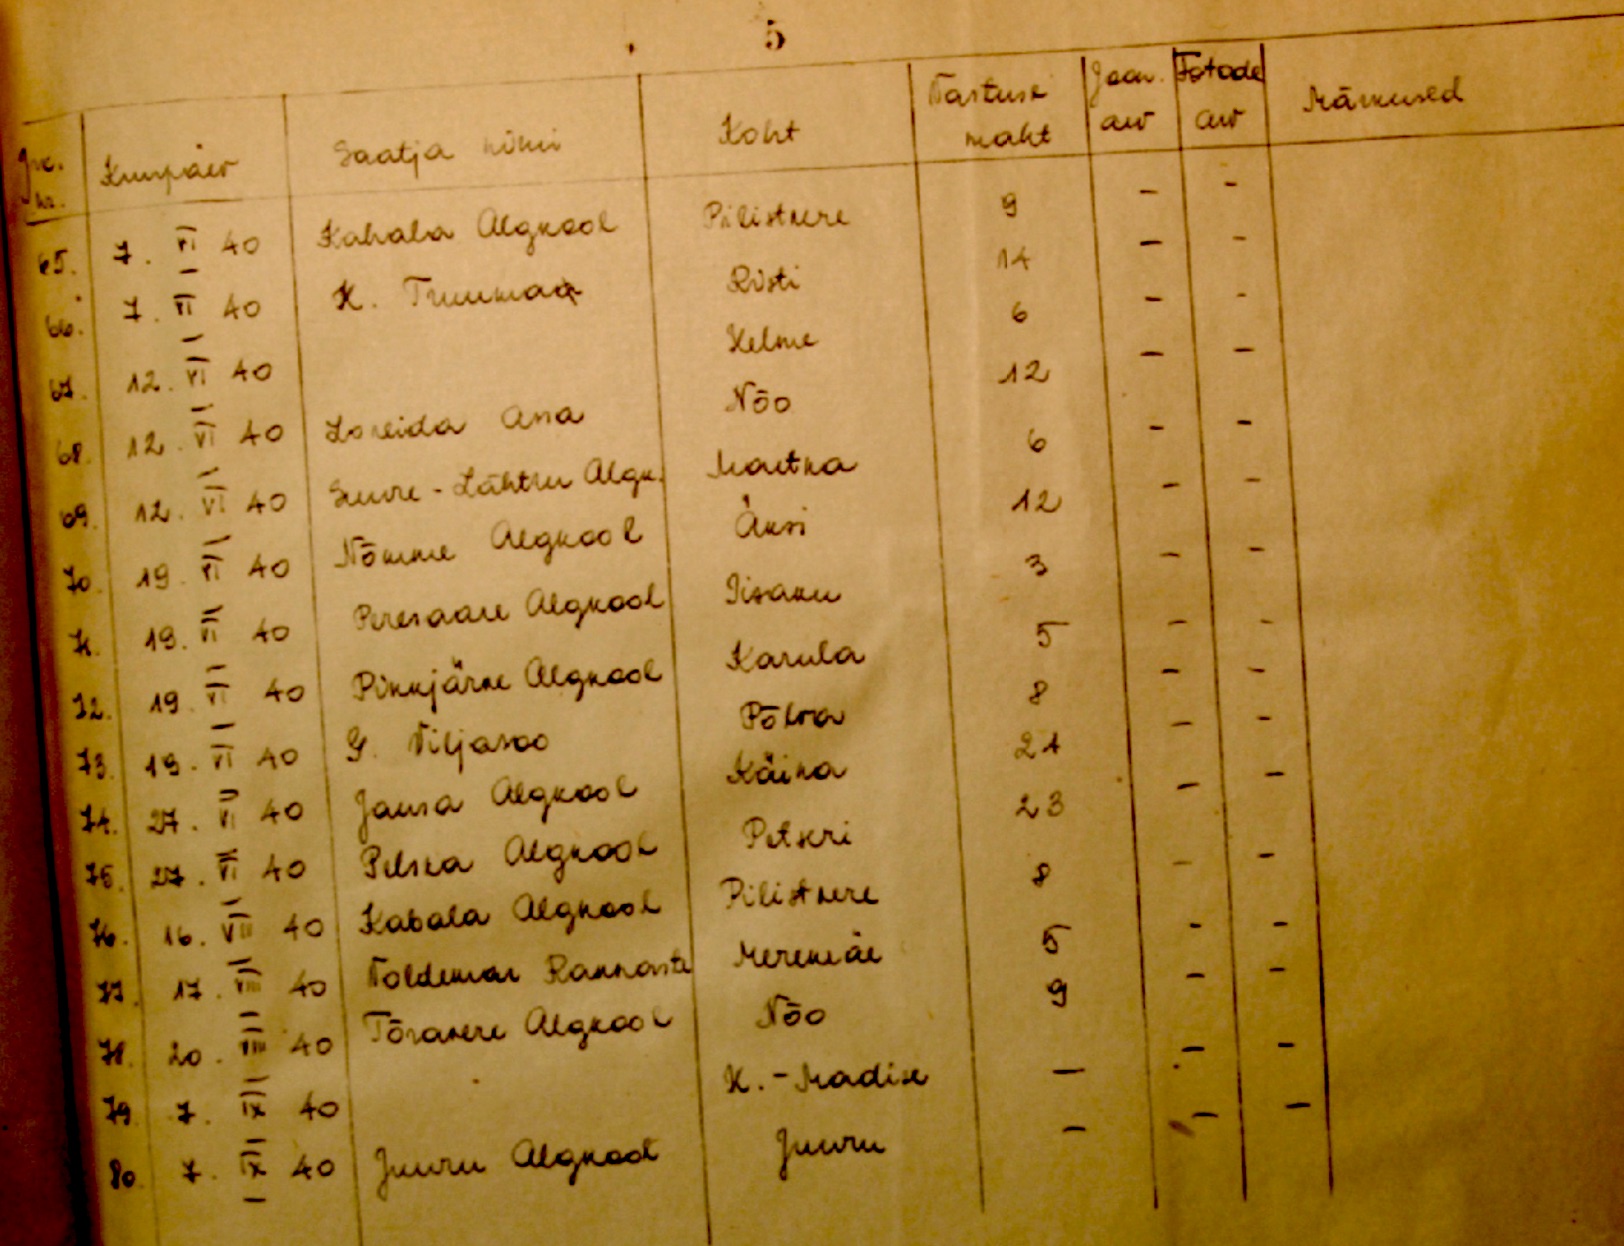 5
Jrk. nr. Kuupäev Saatja nimi Koht Vastuse maht Joon. arv Fotode arv Märkused
65. 7. VI 40 Kabala Algkool Pilistvere 9 - -
66. 7. VI 40 K. Truumaa Risti 14 - -
67. 12. VI 40 Helme 6 - -
68. 12. VI 40 Loreida Assa Nõo 12 - -
69. 12. VI 40 Suure-Lähtru Algk. Martna 6 - -
70. 19. VI 40 Nõmme Algkool Äksi 12 - -
71. 19. VI 40 Peresaare Algkool Iisaku 3 - -
72. 19. VI 40 Pikkjärve Algkool Karula 5 - -
73. 19. VI 40 G. Viljasoo Põlva 8 - -
74. 27. VI 40 Jausa Algkool Käina 21 - -
75. 27. VI 40 Pelska Algkool Petseri 23 - -
76. 16. VII 40 Kabala Algkool Pilistvere 8 - -
77. 17. VIII 40 Voldemar Rannaste Meremäe 5 - -
78. 20. VIII 40 Tõravere Algkool Nõo 9 - -
79. 7. IX 40 K.-Madise - - -
80. 7. IX 40 Juuru Algkool Juuru - - -